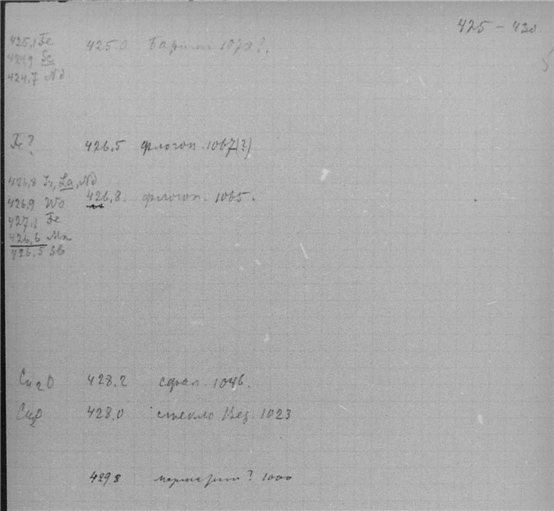 425 – 430
425,1 Fe 425.0 Барит 1078?
424,9 Sc
424,7 Nd
Fe? 426,5 флогоп. 1067(?)
426,8 Tr, La, Nd
426,9 Wo 426,8. флогоп. 1065.
427,1 Fe
426,6 Mn
426,5 Sb
Cu2O 428.2 сфал. 1046.
Cu2O 428.0 стекло Вез. 1023
429.8 ? 1000